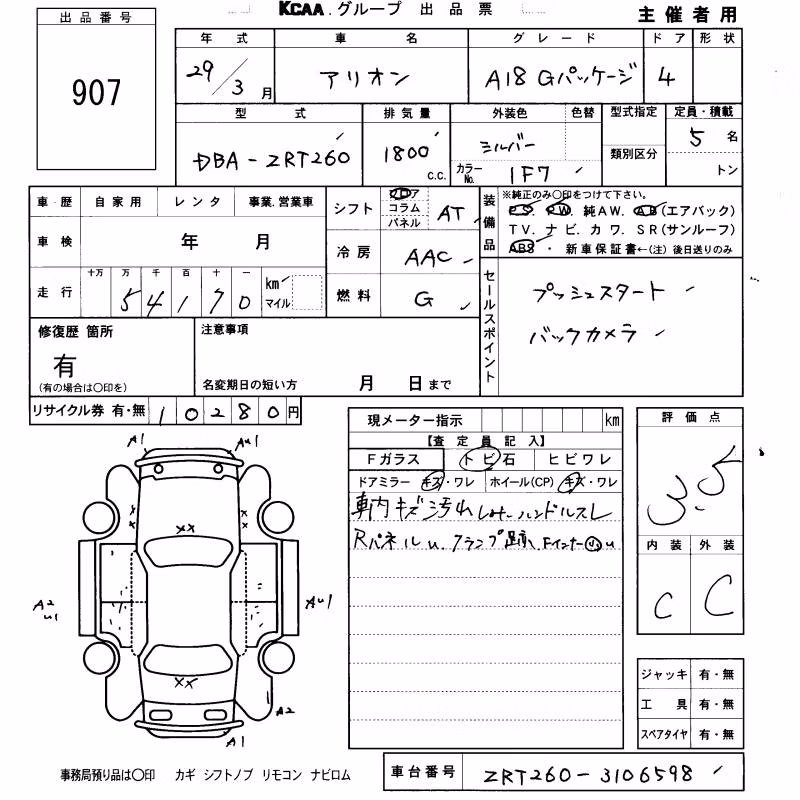 KCAA.グループ 出品票
主催者用
出品番号
907
年式 車名 グレード ドア 形状
29/3月 アリオン A18 Gパッケージ 4
型式 排気量 外装色 色替 型式指定 定員・積載
DBA-ZRT260 1800 c.c. シルバー 5名
カラーNo. 1F7 類別区分 トン
車歴 自家用 レンタ 事業.営業車
シフト フロア コラム パネル AT
装備品
※純正のみ〇印をつけて下さい。
P S. P W. 純AW. AB(エアバック)
TV. ナビ. カワ. SR(サンルーフ)
ABS ・ 新車保証書←(注) 後日送りのみ
車検 年 月
冷房 AAC
走行 十万 万 千 百 十 一
5 4 1 7 0 km マイル
燃料 G
セールスポイント
プッシュスタート
バックカメラ
修復歴 箇所
有
(有の場合は〇印を)
注意事項
名変期日の短い方 月 日まで
リサイクル券 有・無 10280円
現メーター指示 km
【査定員記入】
Fガラス トビ石 ヒビワレ
ドアミラー キズ・ワレ ホイール(CP) キズ・ワレ
車内キズ汚れ ハンドルスレ
Rパネルu.クランプ跡、Fインナー u
評価点
3.5
内装 外装
C C
A1 Au1
XX
A2
u1
Au1
XX
A2
A1
ジャッキ 有・無
工具 有・無
スペアタイヤ 有・無
事務局預り品は〇印 カギ シフトノブ リモコン ナビロム
車台番号 ZRT260-3106598